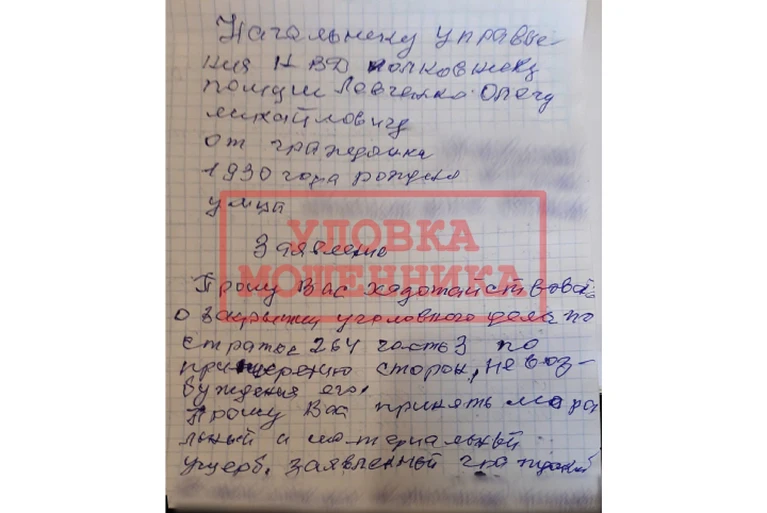 Начальнику управле-
ния НВД полковнику
полиции Левченко Олегу
михайловичу
от гражданина
1930 года рождения
улица
УЛОВКА
МОШЕННИКА
Заявление
Прошу Вас ходотайствовать
о закрытии уголовного дела по
стратье 264 часть 3 по
примерению сторон, не воз-
буждения его.
Прошу Вас принять мораl
льный и материальный
ущерб, заявленный